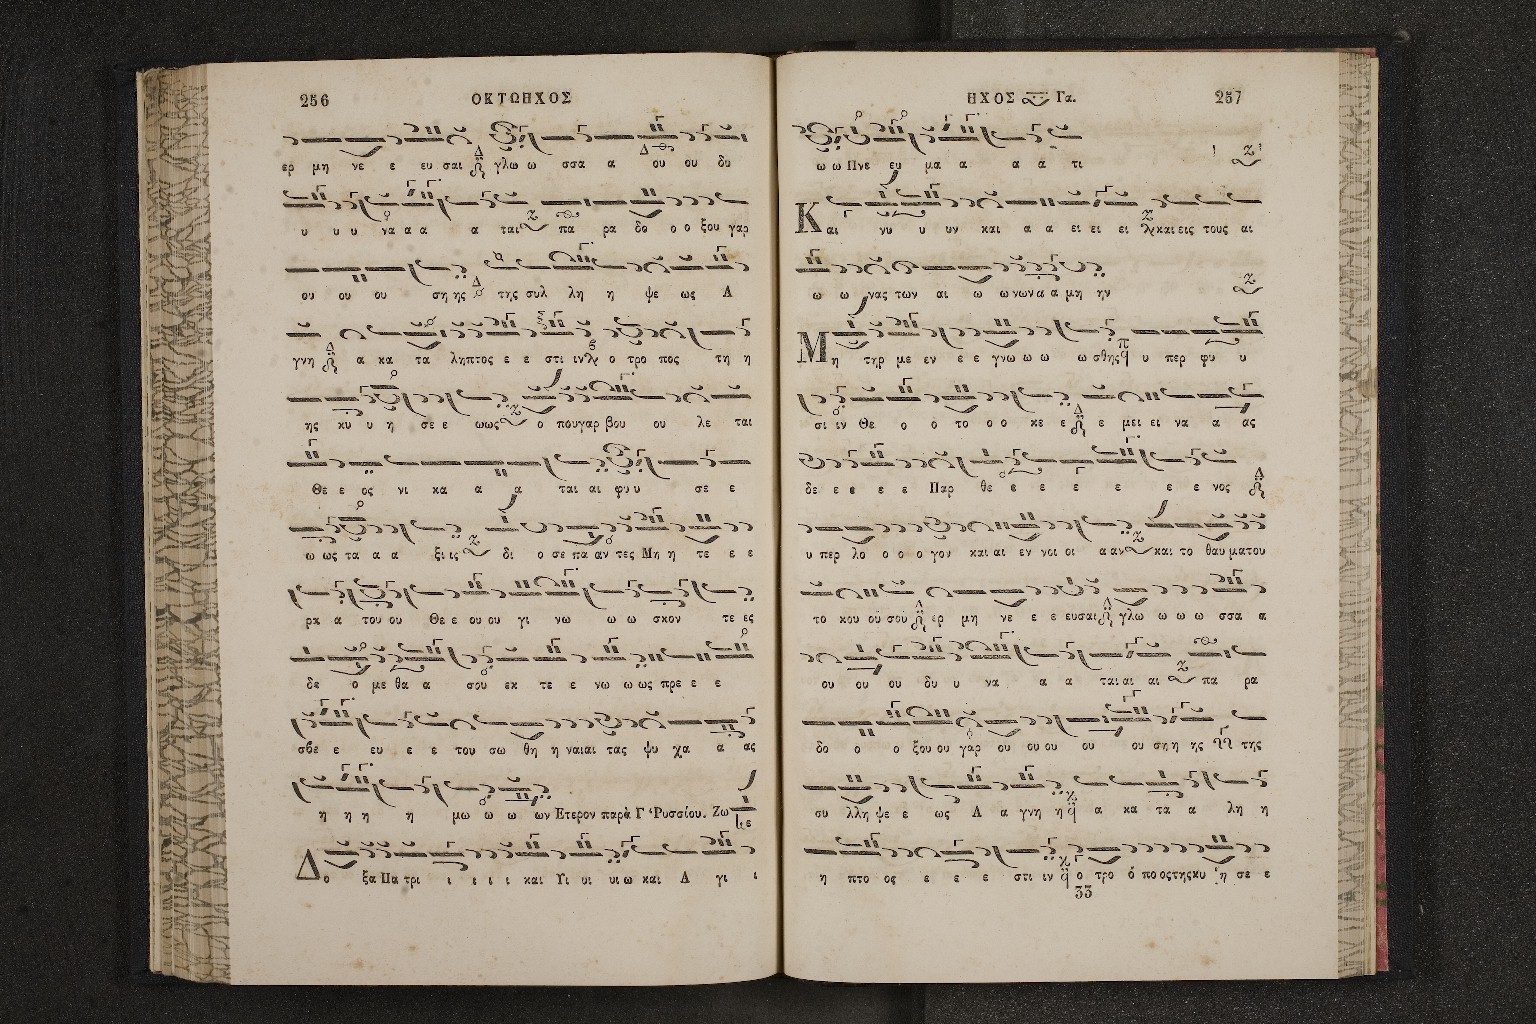 256 ΟΚΤΩΗΧΟΣ
ερ μη νε ε ευ σαι γλω ω σσα α ου ου δυ
υ υ υ να α α α ται πα ρα δο ο ο ξου γαρ
ου ου ου ση ης της συλ λη η ψε ως Α
γνη α κα τα ληπτος ε ε στι ιν ο τρο πος τη η
ης κυ υ η σε ε ωως ο που γαρ βου ου λε ται
Θε ε ος νι κα α α ται αι φυ υ σε ε
ω ως τα α α ξι ις δι ο σε πα αν τες Μη η τε ε ε
ρα α του ου Θε ε ου ου γι νω ω ω σκον τε ες
δε ο με θα α σου εκ τε ε νω ω ως πρε ε ε
σβε ε ευ ε ε του σω θη η ναι αι τας ψυ χα α ας
η η η η μω ω ω ων Ετερον παρὰ Γ Ῥυσσίου. Ζω Κε
Δο ξα Πα τρι ι ι ι ι και Υι υι υι ω και Α γι ι
ΗΧΟΣ Γα. 257
ω ω Πνε ευ μα α α α τι
Και νυ υ υν και α α ει ει ει και εις τους αι
ω ω νας των αι ω ω νων α α μη ην
Μη τηρ με εν ε ε γνω ω ω ω σθης υ περ φυ υ
σι ιν Θε ο ό το ο ο κε ε ε μει ει να α ας
δε ε ε ε ε Παρ θε ε ε ε ε ε ε νος
υ περ λο ο ο ο γον και αι εν νοι οι α αν και το θαυ μα του
το κου ου σου ερ μη νε ε ε ευσαι γλω ω ω ω σσα α
ου ου ου δυ υ να α α ται αι αι πα ρα
δο ο ο ξου ου γαρ ου ου ου ου ου ση η ης της
συ λλη ψε ε ως Α α γνη η α κα τα α λη η
η πτο ος ε ε ε στι ιν ο τρο ό πο ος της κυ η σε ε
33